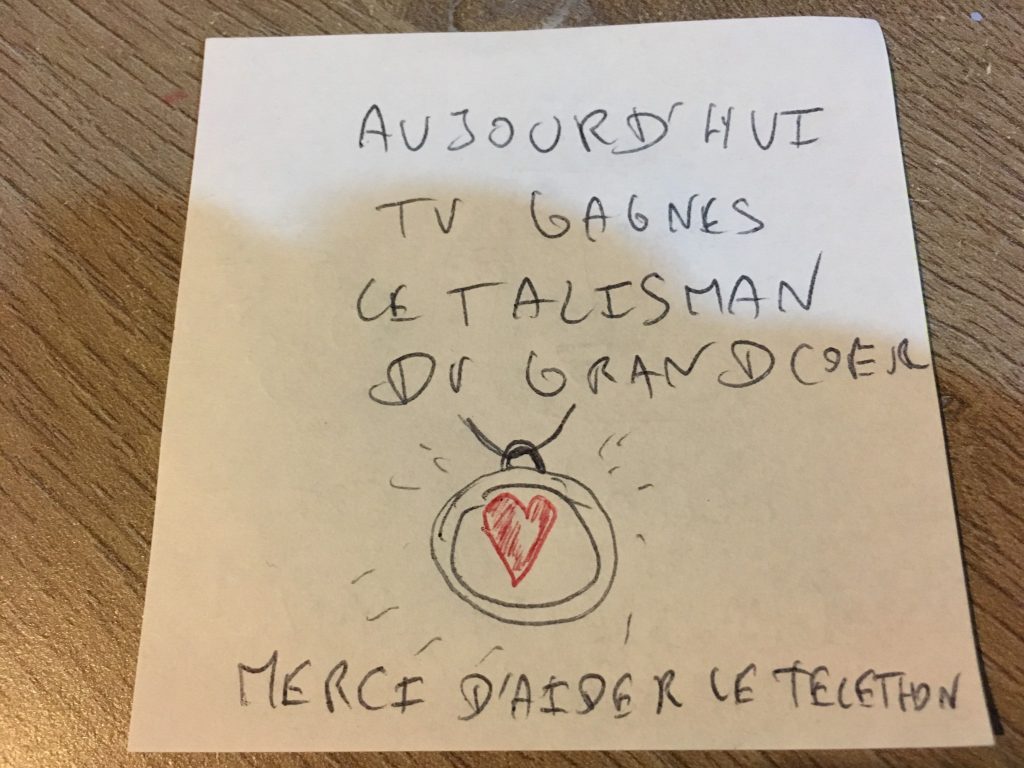 AUJOURD'HUI
TU GAGNES
LE TALISMAN
DU GRAND COER
MERCI D'AIDER LE TELETHON